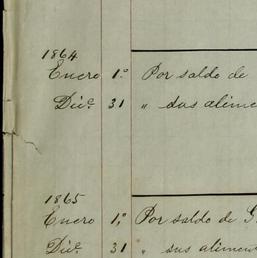 1864
Enero 1º Por saldo de
Dicᵉ 31 " sus alime
1865
Enero 1º Por saldo de G
Dicᵉ 31 " sus alimen